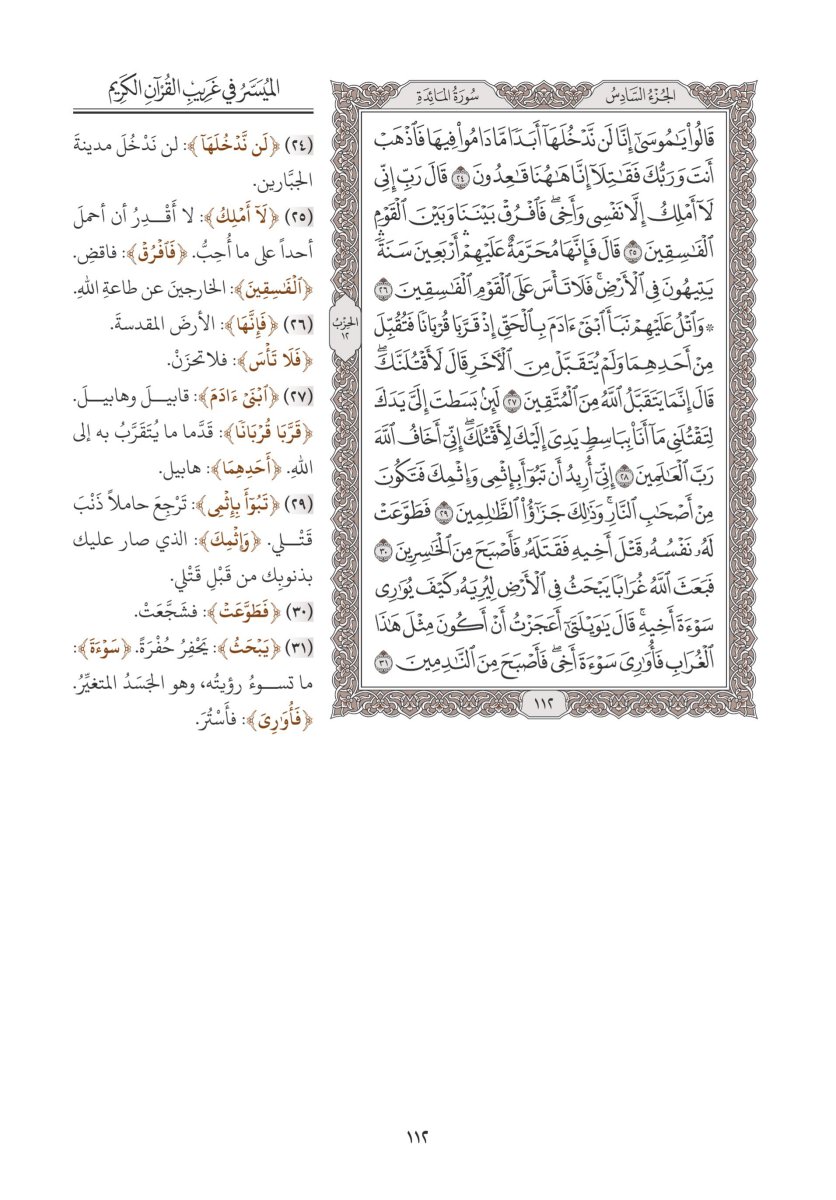 الجُزْءُ السَّادِسُ
سُورَةُ المَائِدَةِ
قَالُواْ يَٰمُوسَىٰٓ إِنَّا لَن نَّدْخُلَهَآ أَبَدٗا مَّا دَامُواْ فِيهَا فَٱذْهَبْ
أَنتَ وَرَبُّكَ فَقَٰتِلَآ إِنَّا هَٰهُنَا قَٰعِدُونَ ٢٤ قَالَ رَبِّ إِنِّي
لَآ أَمْلِكُ إِلَّا نَفْسِي وَأَخِيۖ فَٱفْرُقْ بَيْنَنَا وَبَيْنَ ٱلْقَوْمِ
ٱلْفَٰسِقِينَ ٢٥ قَالَ فَإِنَّهَا مُحَرَّمَةٌ عَلَيْهِمْۛ أَرْبَعِينَ سَنَةٗۛ
يَتِيهُونَ فِي ٱلْأَرْضِۚ فَلَا تَأْسَ عَلَى ٱلْقَوْمِ ٱلْفَٰسِقِينَ ٢٦
۞ وَٱتْلُ عَلَيْهِمْ نَبَأَ ٱبْنَيْ ءَادَمَ بِٱلْحَقِّ إِذْ قَرَّبَا قُرْبَانٗا فَتُقُبِّلَ
مِنْ أَحَدِهِمَا وَلَمْ يُتَقَبَّلْ مِنَ ٱلْأٓخَرِ قَالَ لَأَقْتُلَنَّكَۖ
قَالَ إِنَّمَا يَتَقَبَّلُ ٱللَّهُ مِنَ ٱلْمُتَّقِينَ ٢٧ لَئِنۢ بَسَطتَ إِلَيَّ يَدَكَ
لِتَقْتُلَنِي مَآ أَنَا۠ بِبَاسِطٖ يَدِيَ إِلَيْكَ لِأَقْتُلَكَۖ إِنِّيٓ أَخَافُ ٱللَّهَ
رَبَّ ٱلْعَٰلَمِينَ ٢٨ إِنِّيٓ أُرِيدُ أَن تَبُوٓأَ بِإِثْمِي وَإِثْمِكَ فَتَكُونَ
مِنْ أَصْحَٰبِ ٱلنَّارِۚ وَذَٰلِكَ جَزَٰٓؤُاْ ٱلظَّٰلِمِينَ ٢٩ فَطَوَّعَتْ
لَهُۥ نَفْسُهُۥ قَتْلَ أَخِيهِ فَقَتَلَهُۥ فَأَصْبَحَ مِنَ ٱلْخَٰسِرِينَ ٣٠
فَبَعَثَ ٱللَّهُ غُرَابٗا يَبْحَثُ فِي ٱلْأَرْضِ لِيُرِيَهُۥ كَيْفَ يُوَٰرِي
سَوْءَةَ أَخِيهِۚ قَالَ يَٰوَيْلَتَىٰٓ أَعَجَزْتُ أَنْ أَكُونَ مِثْلَ هَٰذَا
ٱلْغُرَابِ فَأُوَٰرِيَ سَوْءَةَ أَخِيۖ فَأَصْبَحَ مِنَ ٱلنَّٰدِمِينَ ٣١
١١٢
الحِزْبُ
١٢
المُيَسَّرُ في غَرِيبِ القُرْآنِ الكَرِيمِ
(٢٤) ﴿لَن نَّدْخُلَهَآ﴾: لن نَدْخُلَ مدينةَ
الجبَّارين.
(٢٥) ﴿لَآ أَمْلِكُ﴾: لا أَقْدِرُ أن أحملَ
أحداً على ما أُحِبُّ. ﴿فَٱفْرُقْ﴾: فاقضِ.
﴿ٱلْفَٰسِقِينَ﴾: الخارجينَ عن طاعةِ اللهِ.
(٢٦) ﴿فَإِنَّهَا﴾: الأرضَ المقدسةَ.
﴿فَلَا تَأْسَ﴾: فلا تحزَنْ.
(٢٧) ﴿ٱبْنَيْ ءَادَمَ﴾: قابيلَ وهابيلَ.
﴿قَرَّبَا قُرْبَانٗا﴾: قَدَّما ما يُتَقَرَّبُ به إلى
اللهِ. ﴿أَحَدِهِمَا﴾: هابيل.
(٢٩) ﴿تَبُوٓأَ بِإِثْمِي﴾: تَرْجِعَ حاملاً ذَنْبَ
قَتْلي. ﴿وَإِثْمِكَ﴾: الذي صار عليك
بذنوبِك من قَبْلِ قَتْلي.
(٣٠) ﴿فَطَوَّعَتْ﴾: فشَجَّعَتْ.
(٣١) ﴿يَبْحَثُ﴾: يَحْفِرُ حُفْرَةً. ﴿سَوْءَةَ﴾:
ما تسوءُ رؤيتُه، وهو الجَسَدُ المتغيِّرُ.
﴿فَأُوَٰرِيَ﴾: فأَسْتُرَ.
١١٢